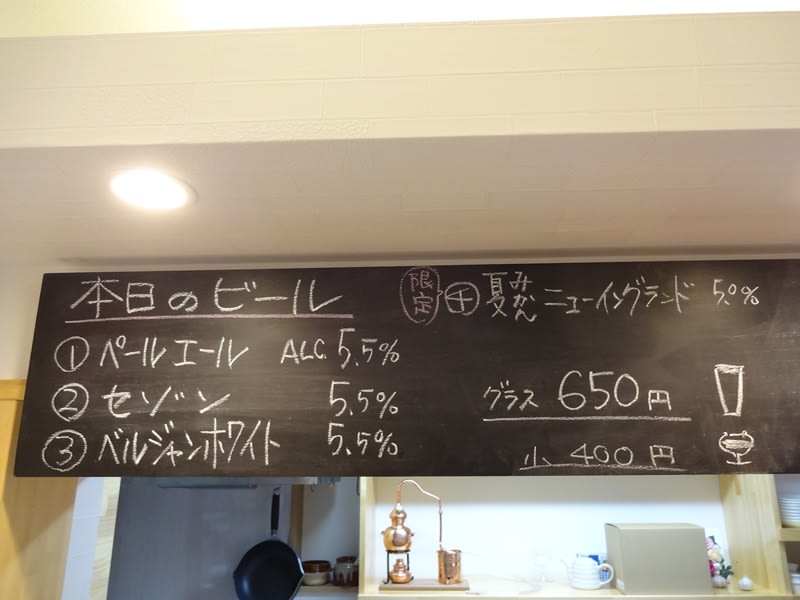 本日のビール
① ペールエール ALC. 5.5%
② セゾン 5.5%
③ ベルジャンホワイト 5.5%
限定 ④ 夏みかん ニューイングランド 5.0%
グラス 650円
小 400円